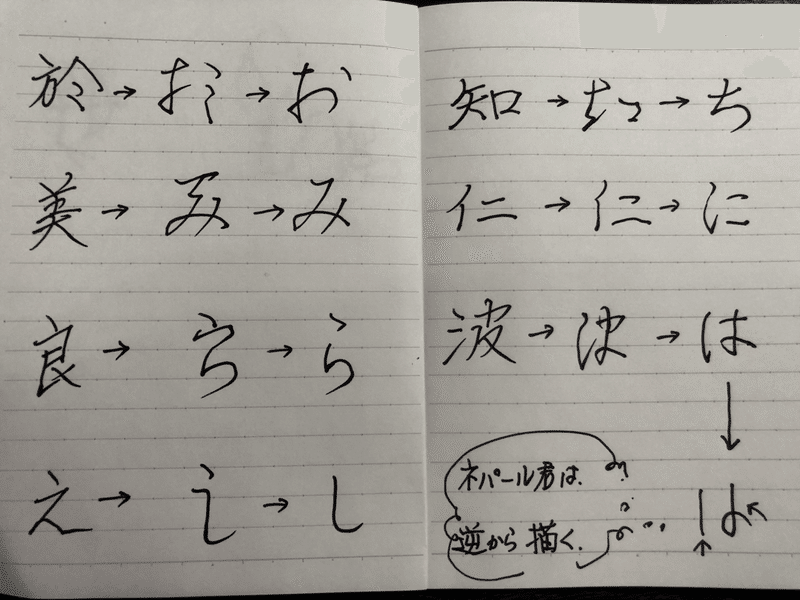 於→ →お
美→み→み
良→ら→ら
え→ →し
知→ →ち
仁→仁→に
波→ →は
↓
は
ネパール君は、
逆から描く。